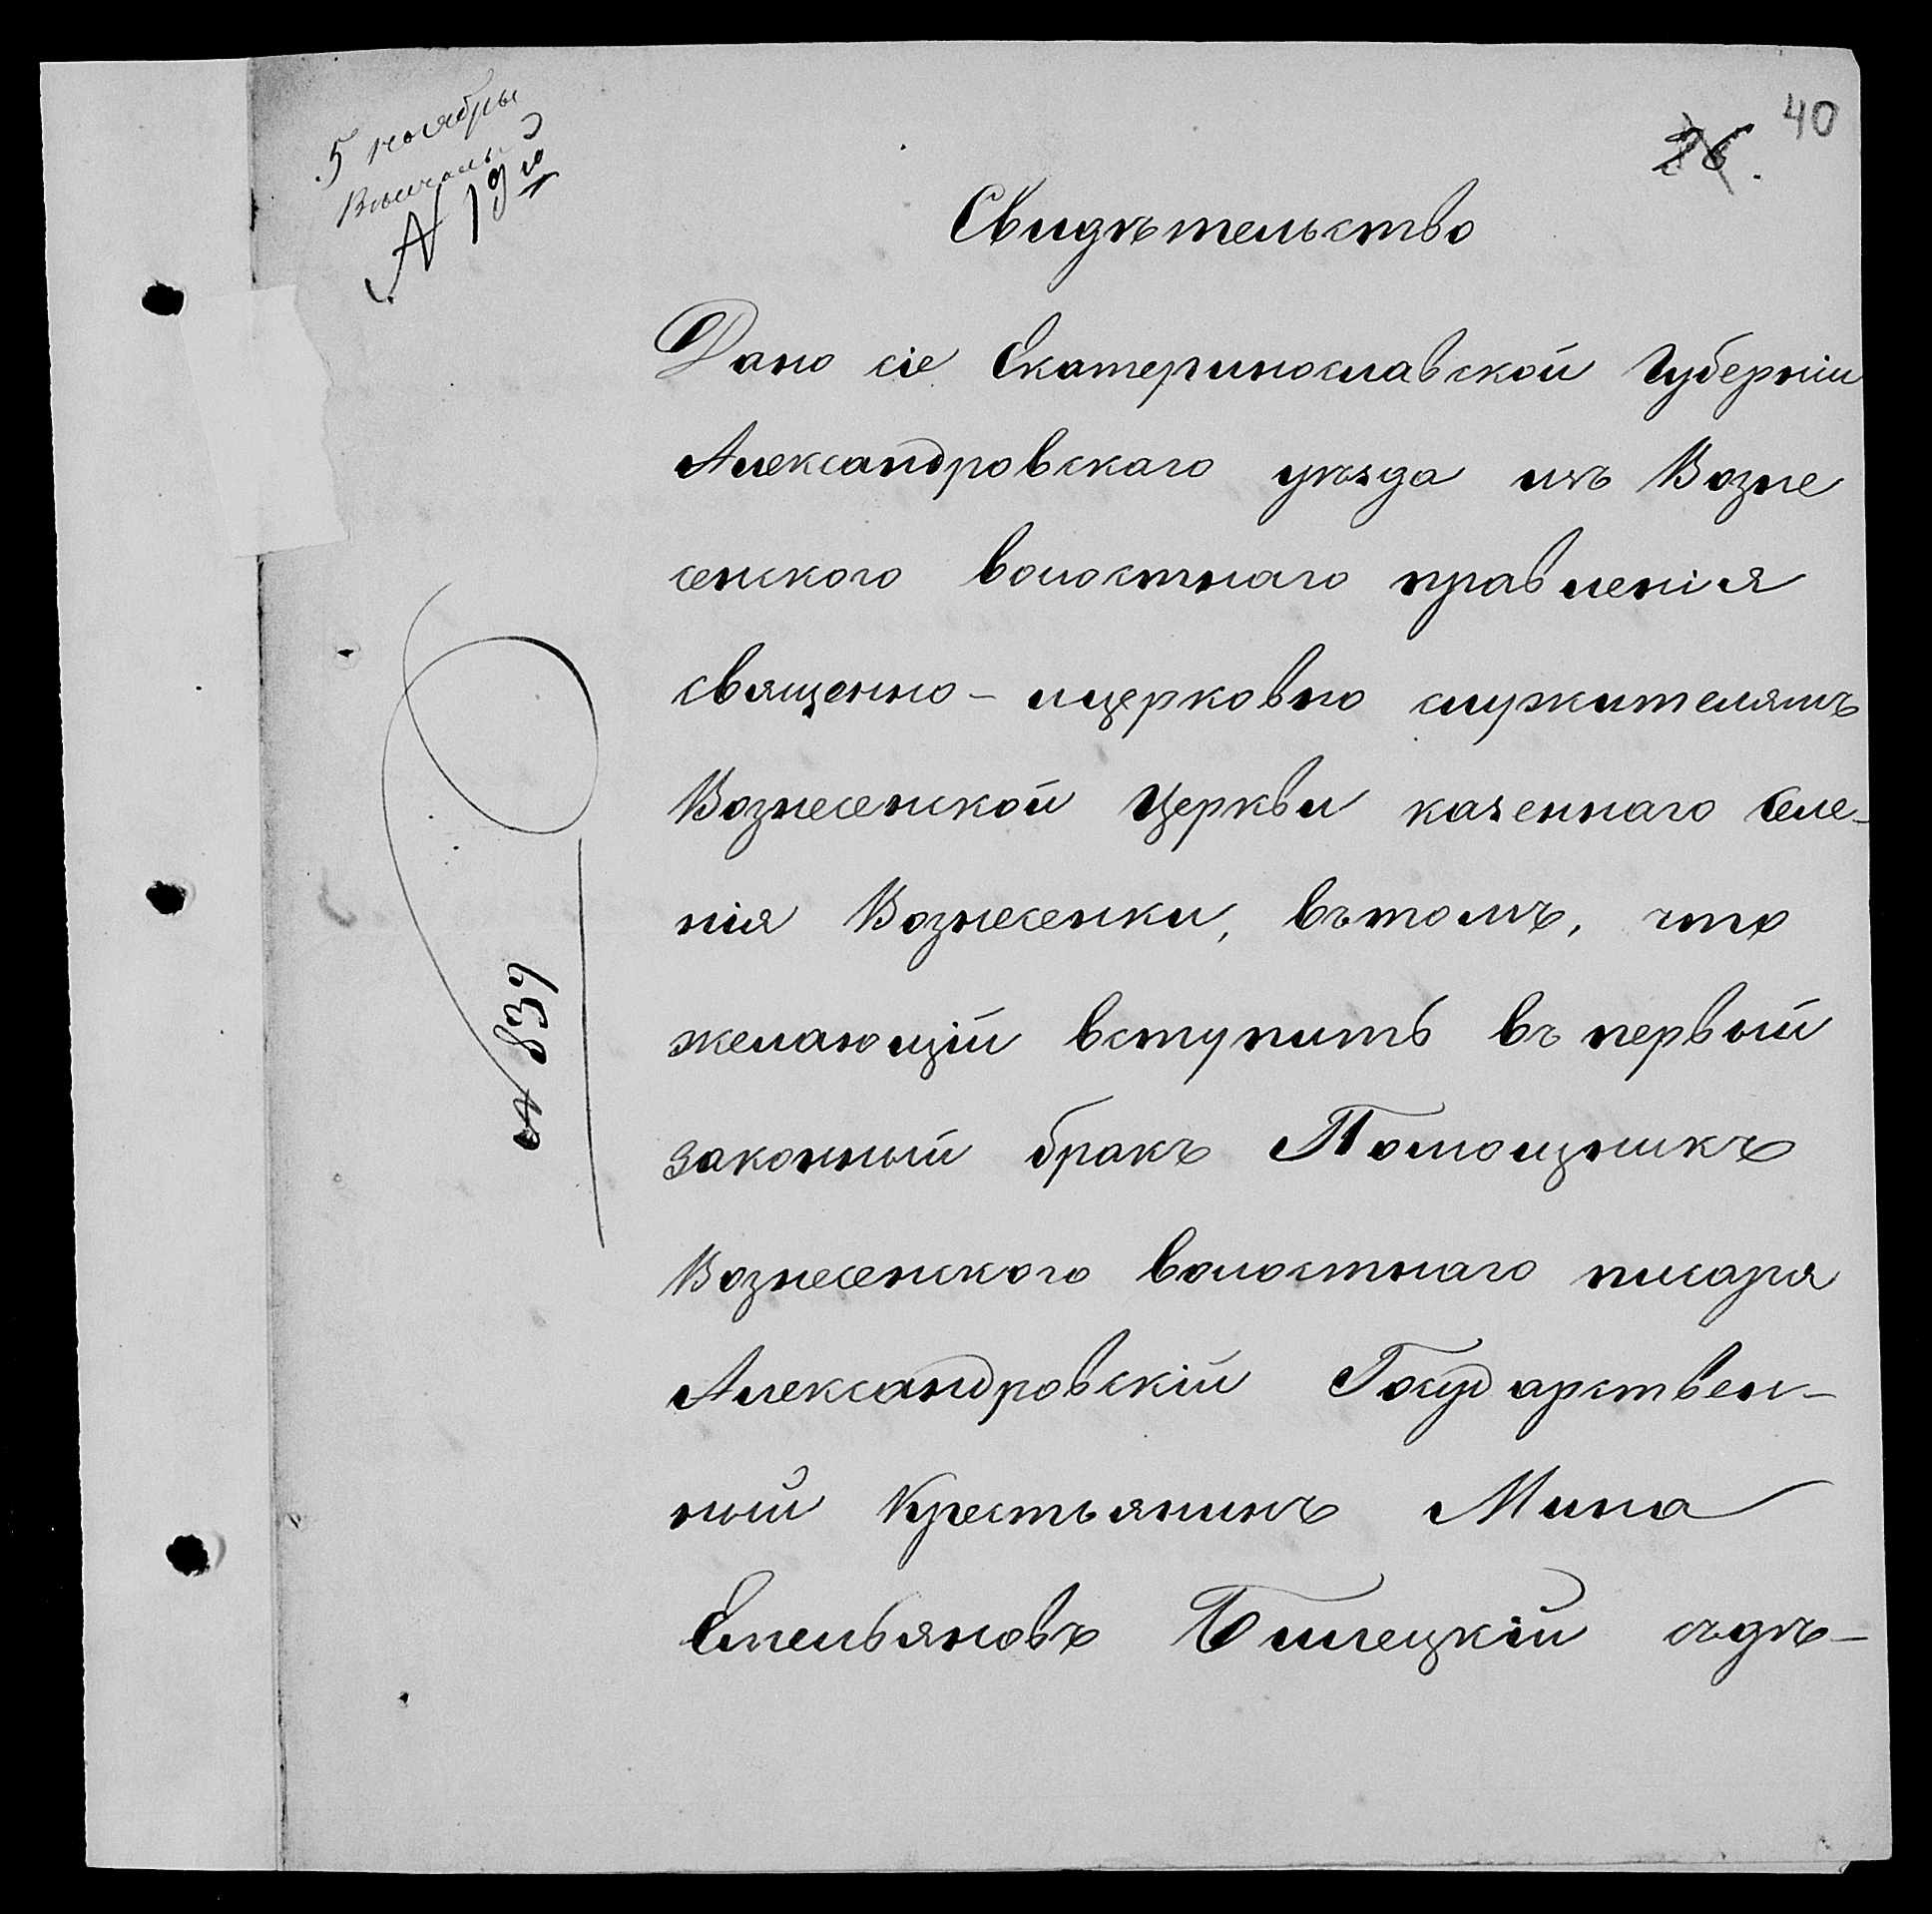 40
26.
5 ноября
№ 19й
Свидѣтельство
Дано сіе Екатеринославской Губерніи
Александровскаго уѣзда изъ Возне
сенского волостнаго правленія
священно-ицерковно служителямъ
Вознесенской Церкви казеннаго Селе-
нія Вознесенки, вътомъ, что
желающій вступить въ первый
законный бракъ Помощникъ
Вознесенского волостнаго писаря
Александровскій Государствен-
ный Крестьянинъ Мина
Емельяновъ Билецкій съдѣ-
№ 839